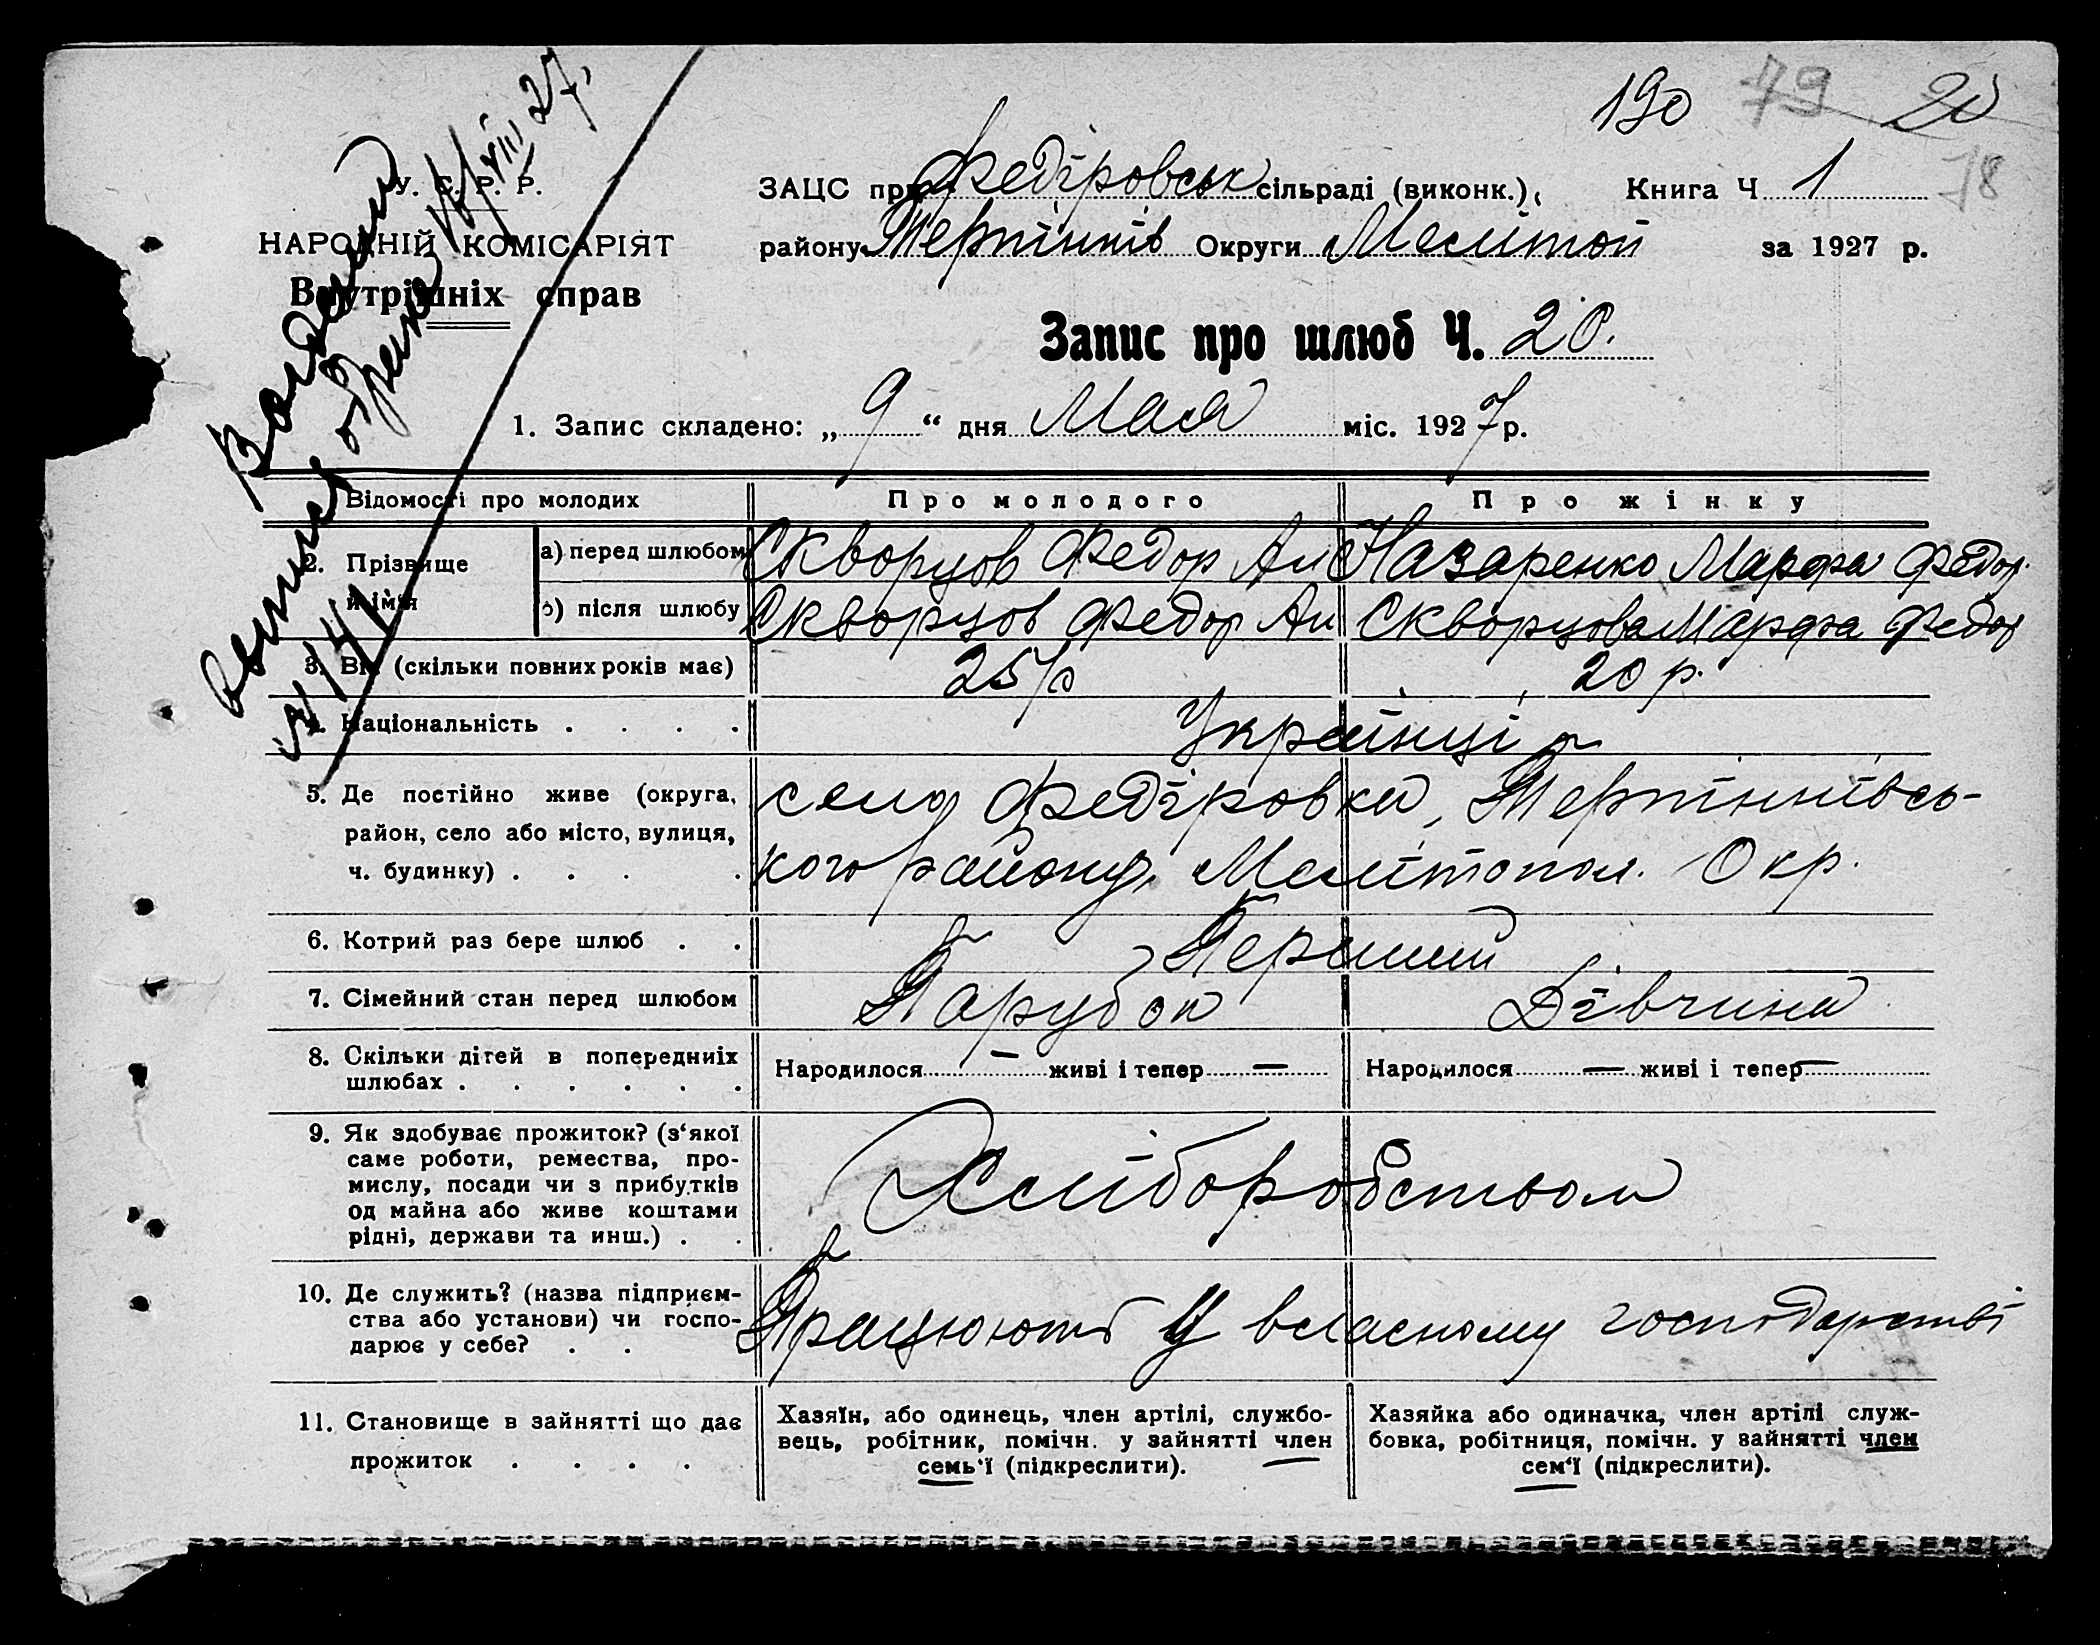 190 79 20
78
У. С. Р. Р.
НАРОДНІЙ КОМІСАРІЯТ
Внутрішніх справ
27.
ЗАЦС при Федіровськ сільраді (виконк.), Книга Ч 1
району Терпіннів Округи Мелітоп за 1927 р.
Запис про шлюб Ч. 20.
1. Запис складено: „ 9 “ дня Мая міс. 1927 р.
Відомості про молодих Про молодого Про жінку
2. Прізвище й ім'я
а) перед шлюбом Скворцов Федор Ан Назаренко Марфа Федор.
б) після шлюбу Скворцов Федор Ан Скворцова Марфа Федор
3. Вік (скільки повних років має) 25 р 20 р.
4. Національність . . . . Українці
5. Де постійно живе (округа, село Федіровка, Терпіннівсь-
район, село або місто, вулиця, кого району, Мелітопол. Окр.
ч. будинку) . . . .
6. Котрий раз бере шлюб . . Перший
7. Сімейний стан перед шлюбом Парубок Дівчина
8. Скільки дітей в попередниіх
шлюбах . . . . . . Народилося — живі і тепер — Народилося — живі і тепер —
9. Як здобуває прожиток? (з‘якої
саме роботи, ремества, про-
мислу, посади чи з прибутків
од майна або живе коштами
рідні, держави та инш.) . .
Хліборобством
10. Де служить? (назва підприєм-
ства або установи) чи госпо-
дарює у себе? . .
Працюють у власному господарстві
11. Становище в зайнятті що дає
прожиток . . . .
Хазяїн, або одинець, член артілі, службо-
вець, робітник, помічн. у зайнятті член
семь‘ї (підкреслити).
Хазяйка або одиначка, член артілі служ-
бовка, робітниця, помічн. у зайнятті член
сем‘ї (підкреслити).